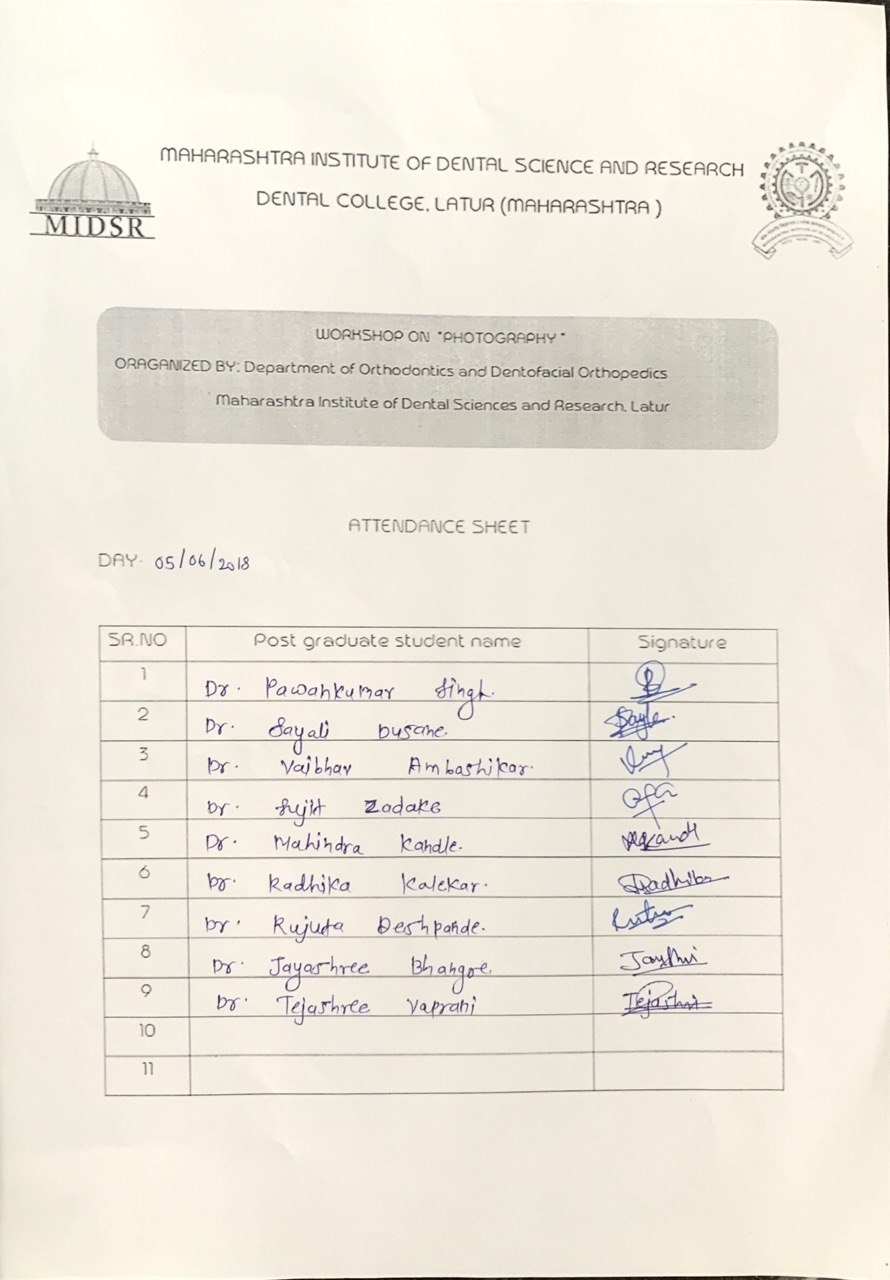 MAHARASHTRA INSTITUTE OF DENTAL SCIENCE AND RESEARCH
DENTAL COLLEGE, LATUR (MAHARASHTRA )
MIDSR
WORKSHOP ON "PHOTOGRAPHY "
ORAGANIZED BY: Department of Orthodontics and Dentofacial Orthopedics
Maharashtra Institute of Dental Sciences and Research, Latur
ATTENDANCE SHEET
DAY- 05/06/2018
SR.NO Post graduate student name Signature
1 Dr. Pawankumar Singh.
2 Dr. Sayali Dusane.
3 Dr. Vaibhav Ambashikar.
4 Dr. Sujit Zadake
5 Dr. Mahindra Kandle.
6 Dr. Radhika Kalekar. Radhika
7 Dr. Rujuta Deshpande.
8 Dr. Jayashree Bhangre.
9 Dr. Tejashree Vaprani Tejashri
10
11